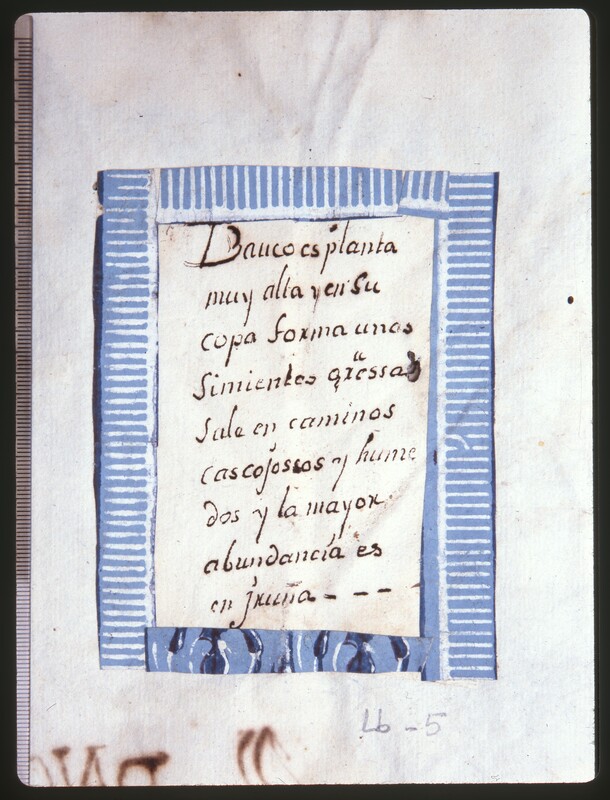 Dauco es planta
muy alta y en su
copa forma unas
simientes gruessas
sale en caminos
cascojossos y hume
dos y la mayor
abundancia es
en jruña - - -
Lb - 5